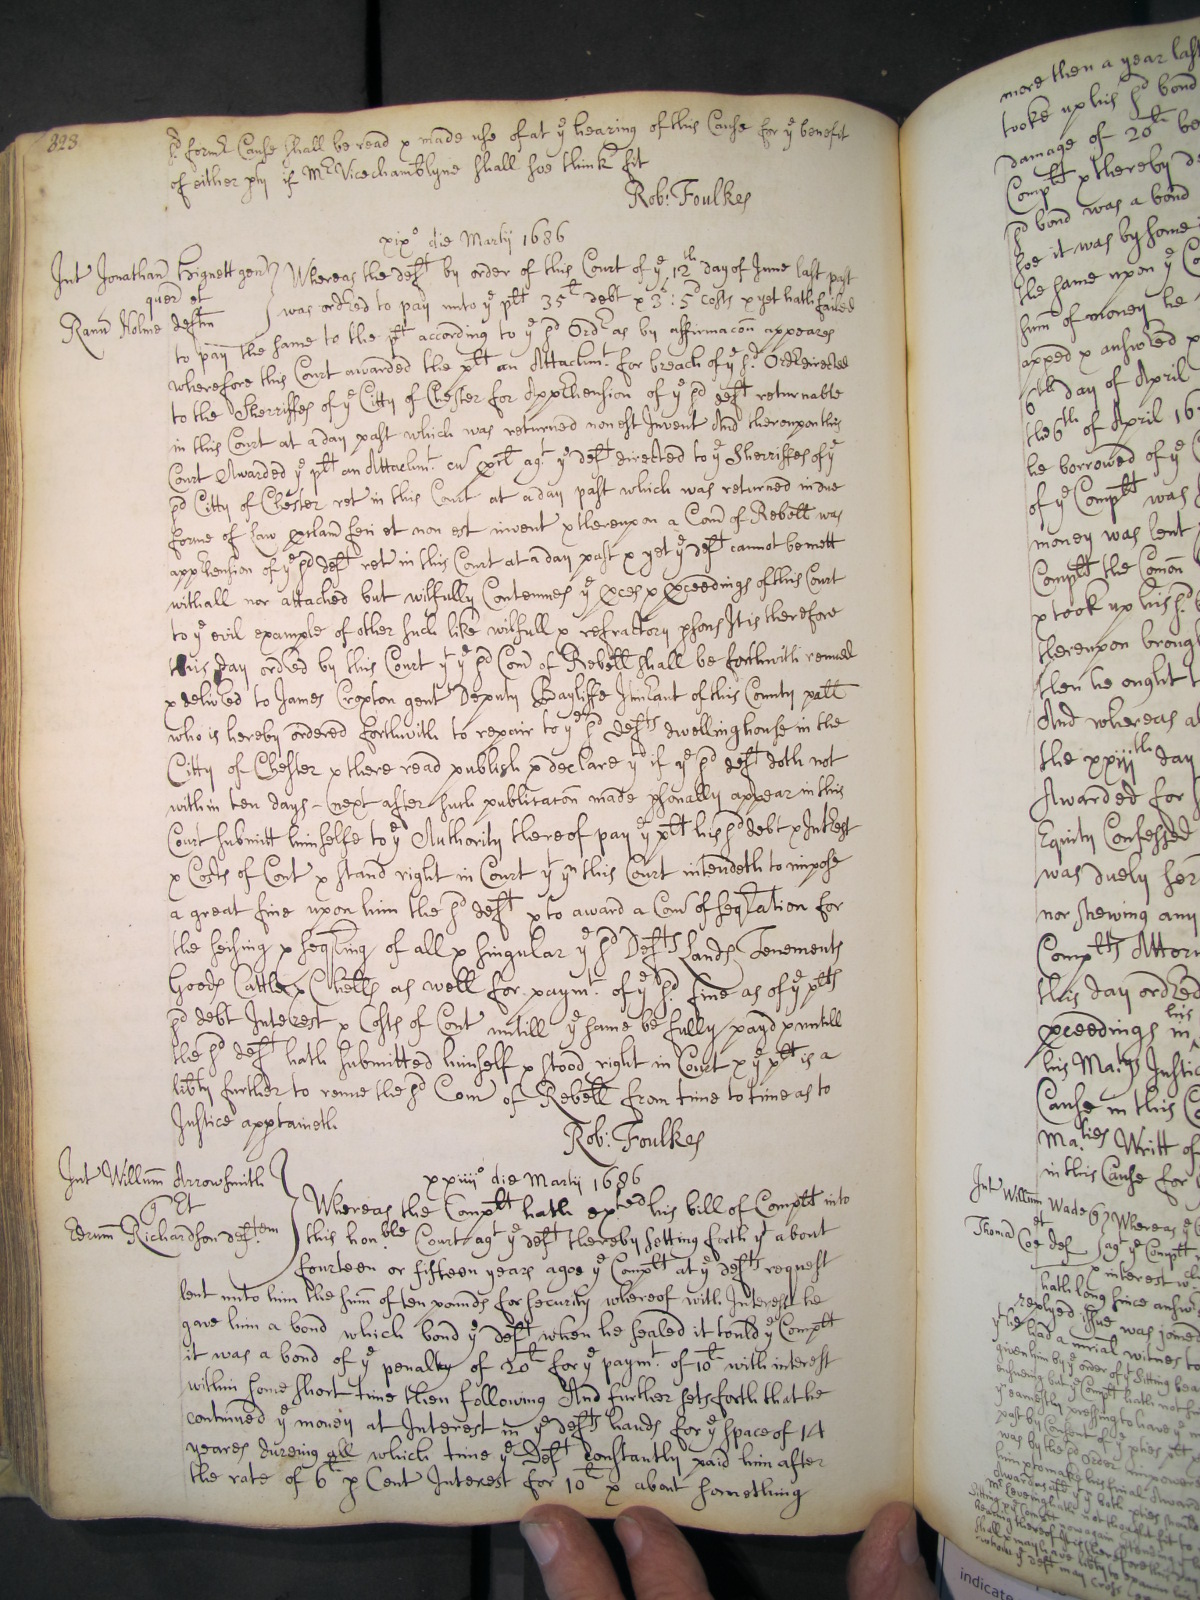 828
sd formr Cause shall be read & made use of at ye hearing of this Cause for ye benefit
of either pty if Mr Vicechamblyne shall soe think fit
Rob: Foulkes
xixo die Martij 1686
Int Jonathan Hignett gent
quer et
Ranu Holme deftem
Whereas the deft by order of this Court of ye 12th day of June last past
was ordred to pay unto ye plt 35l debt & 3l: 5d costs & yet hath failed
to pay the same to the plt according to ye sd Ordr as by affirmacon appeares
wherefore this Court awarded the plt an Attachmt for breach of ye sd Ordr directed
to the Sherriffes of ye Citty of Chester for Apprhension of ye sd deft returnable
in this Court at a day past which was returned non est Invent And thereupon this
Court Awarded ye plt an Attachmt cu procl agt ye deft directed to ye Sherriffes of ye
sd Citty of Chester ret in this Court at a day past which was returned in due
forme of Law proclam feci et non est invent & thereupon a Com of Rebell was
apprhension of ye sd deft ret in this Court at a day past & yet ye deft cannot be mett
withall nor attached but wilfully Contemnes ye pces & pceedings of this Court
to ye evil example of other such like wilfull & refractory psons It is therefore
this day ordred by this Court yt ye sd Com of Rebell shall be forthwith renued
& delived to James Cropton gent Deputy Bayliffe Itinrant of this County pall
who is hereby ordered forthwith to repair to ye sd defts dwelling house in the
Citty of Chester & there read publish & declare yt if ye sd deft doth not
within ten days next after such publicacon made psonally appear in this
Court submitt himselfe to ye Authority thereof pay ye plt his sd debt & Intrest
& Costs of Cont & stand right in Court yt yn this Court intendeth to impose
a great fine upon him the sd deft & to award a Com of seqtration for
the seising & seqtring of all & singular ye sd Defts Lands Tenements
Goods Cattles & Chells as well for paymt of ye sd fine as of ye plts
sd debt Interest & Costs of Cont untill ye same be fully payd & untill
the sd deft hath submitted himself & stood right in Court & ye plt is a
libty further to renue the sd Com of Rebell from time to time as to
Justice apptaineth
Rob: Foulkes
xxiiiio die Martij 1686
Int Willum Arrowsmith
q Et
Edrum Richardson deftem
Whereas the Complt hath exted his bill of Complt into
this honble Court agt ye deft thereby setting forth yt about
fourteen or fifteen years agoe ye Complt at ye defts request
lent unto him the sum of ten pounds for security whereof with Interest he
gave him a bond which bond ye deft when he sealed it tould ye Complt
it was a bond of ye penalty of 20l for ye paymt of 10l with interest
within some short time then following And further sets forth that he
continued ye money at Interest in ye defts hands for ye space of 14
yeares dureing all which time ye Deft constantly paid him after
the rate of 6l p Cent Interest for 10l & about something
more then a year last
tooke up his sd bond
damage of 20l be
Complt & thereby de
sd bond was a bond
soe it was by some
the same upon ye Co
sum of money he
apped & answred &
6th day of April
the 6th of April 16
he borrowed of ye C
of ye Complt was
money was lent
Complt the Comon
& took up his sd
thereupon brough
then he ought t
And whereas a
the xxiijth day
Awarded for
Equity Confessed
was duely ser
nor shewing any
Complts Attorn
this day ordred
his
pceedings in
his Matys Justic
Cause in this Co
Maties Writt of
in this Cause for
Int Willum Wade q
et
Thomas Coe def
Whereas ye C
agt ye Complt
& interest wch
hath long since answ
replyed issue was joined